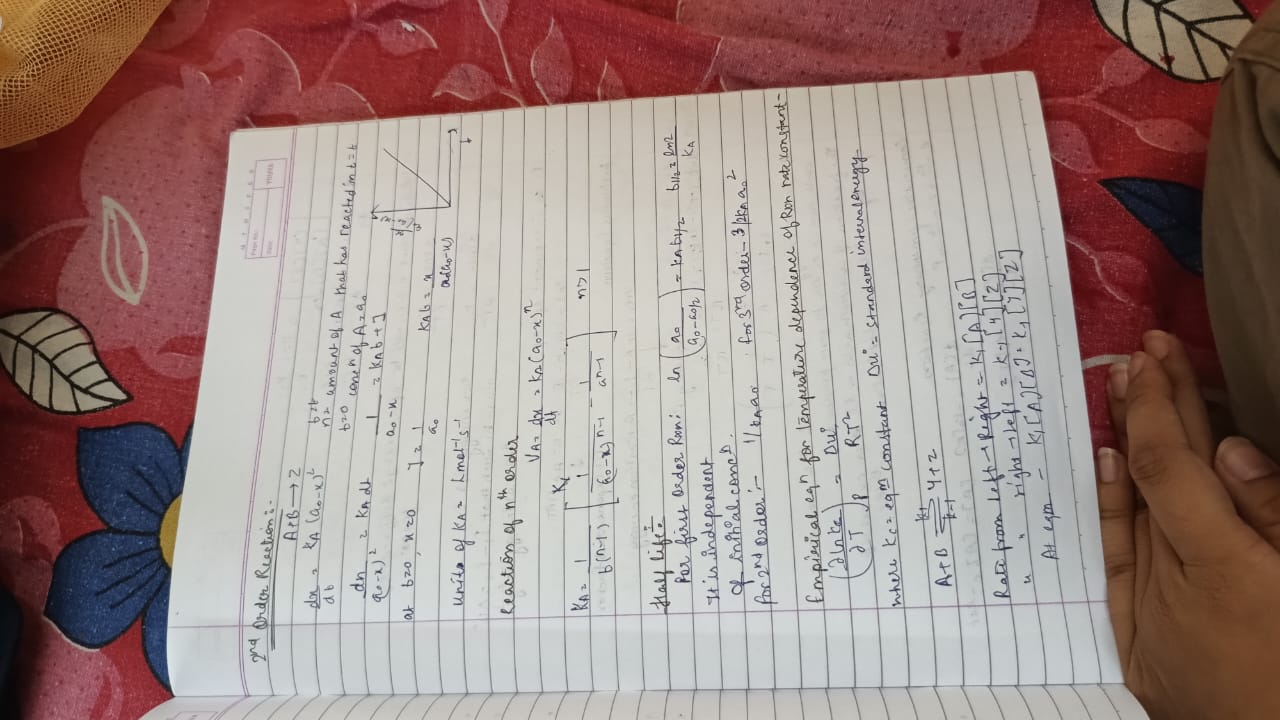 2nd Order Reaction:-
A+B → Z
dx/dt = kA (a0-x)²
t=t
x= amount of A that has reacted in t=t
t=0 concn of A=a0
dx/(a0-x)² = kA dt
1/(a0-x) = kAt + I
at t=0, x=0 I = 1/a0
kAt = x/a0(a0-x)
t
Units of kA = L mol⁻¹ s⁻¹
Reaction of nth order
VA = dx/dt = kA (a0-x)ⁿ
kA = 1/t(n-1) [1/(a0-x)ⁿ⁻¹ - 1/aⁿ⁻¹] n>1
Half life:-
For first order Rxn: ln (a0/(a0-a0/2)) = kA t1/2 t1/2 = ln2/kA
It is independent
of initial concn.
for 2nd order:- 1/kAa0 for 3rd order- 3/2kAa0²
Empirical eqn for temperature dependence of Rxn rate constant-
(∂lnkc/∂T)P = Δui/RT²
where Kc = eqm constant Δui = standard internal energy
A+B ⇌ Y+Z
k1
k-1
Rate from left → Right = k1[A][B]
" " right → left = k-1[Y][Z]
At eqm - k1[A][B] = k-1[Y][Z]